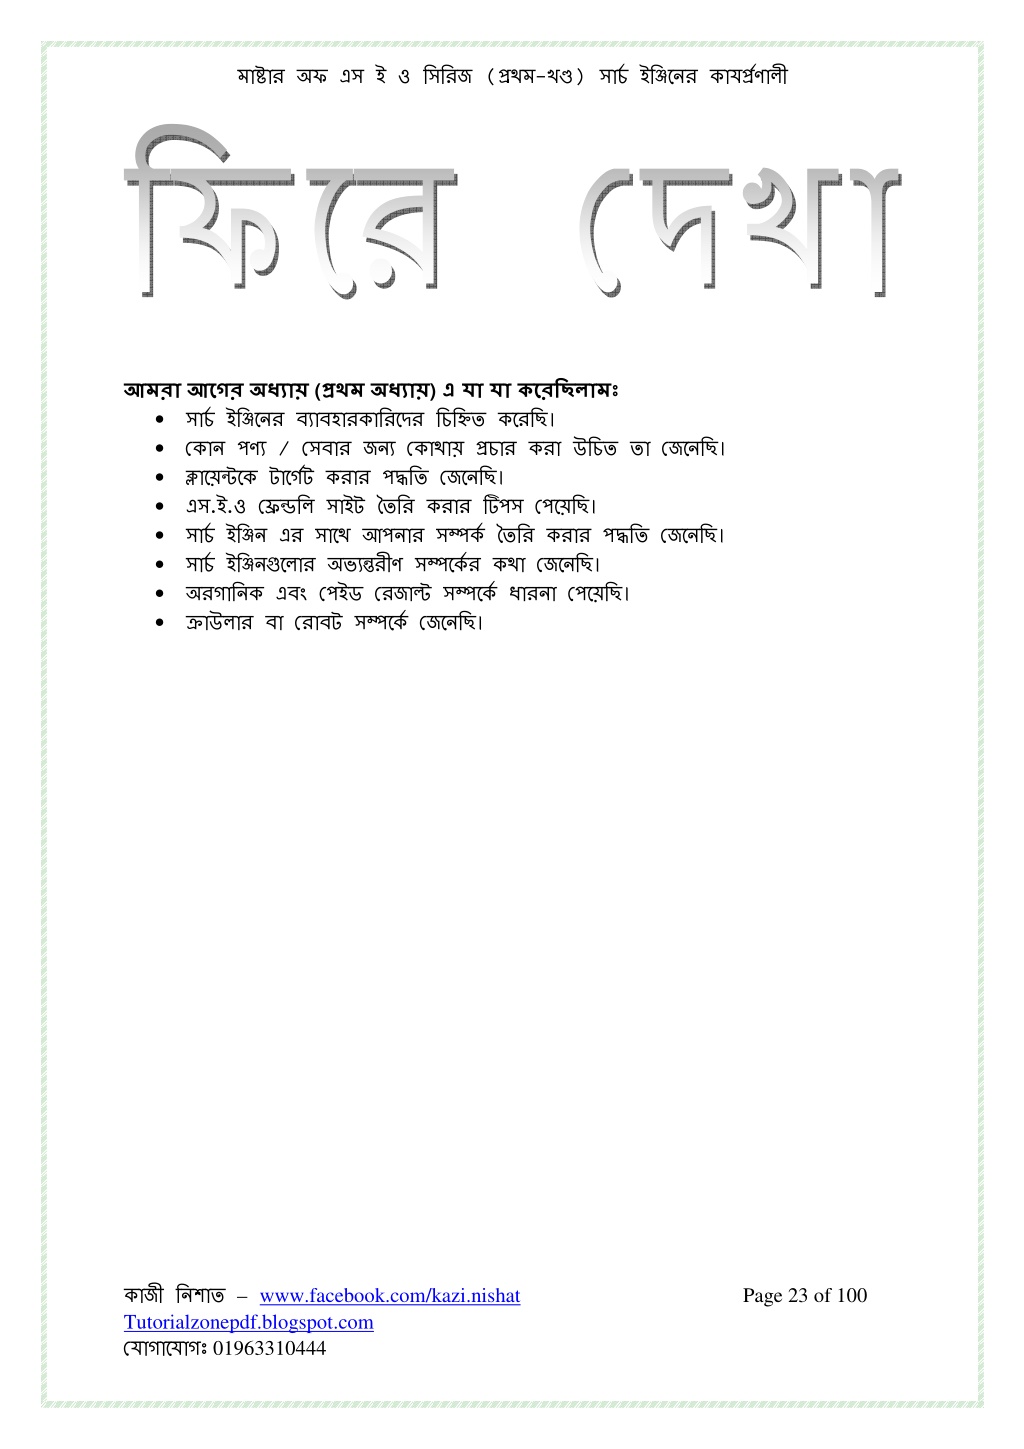 মাষ্টার অফ এস ই ও সিরিজ (প্রথম-খণ্ড) সার্চ ইঞ্জিনের কাযর্প্রণালী
ফিরে দেখা
আমরা আগের অধ্যায় (প্রথম অধ্যায়) এ যা যা করেছিলামঃ
• সার্চ ইঞ্জিনের ব্যাবহারকারিদের চিহ্নিত করেছি।
• কোন পণ্য / সেবার জন্য কোথায় প্রচার করা উচিত তা জেনেছি।
• ক্লায়েন্টকে টার্গেট করার পদ্ধতি জেনেছি।
• এস.ই.ও ফ্রেন্ডলি সাইট তৈরি করার টিপস পেয়েছি।
• সার্চ ইঞ্জিন এর সাথে আপনার সম্পর্ক তৈরি করার পদ্ধতি জেনেছি।
• সার্চ ইঞ্জিনগুলোর অভ্যন্তরীণ সম্পর্কের কথা জেনেছি।
• অরগানিক এবং পেইড রেজাল্ট সম্পর্কে ধারনা পেয়েছি।
• ক্রাউলার বা রোবট সম্পর্কে জেনেছি।
কাজী নিশাত – www.facebook.com/kazi.nishat Page 23 of 100
Tutorialzonepdf.blogspot.com
যোগাযোগঃ 01963310444